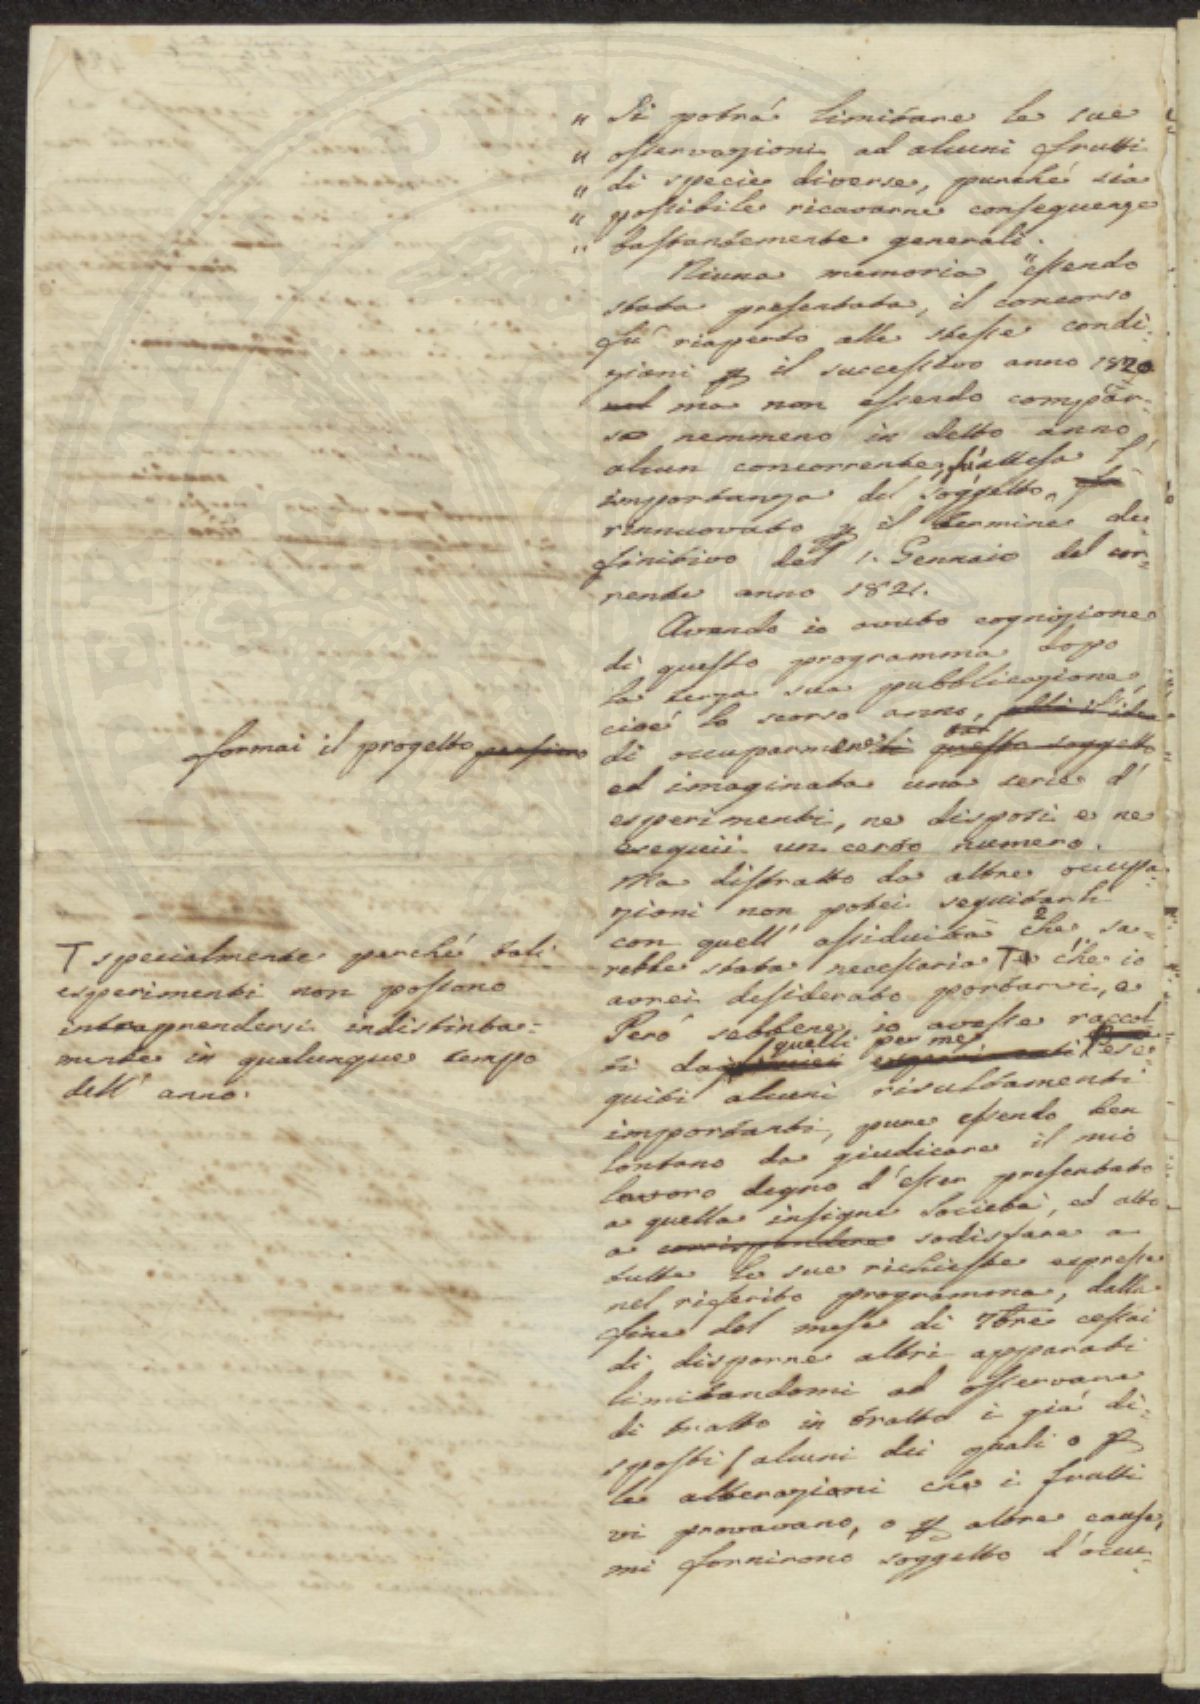 " Si potrà limitare le sue
" osservazioni ad alcuni frutti
" di specie diverse, purché sia
" possibile ricavarne conseguenze
" bastantemente generali.
Niuna memoria essendo
stata presentata, il concorso
fu riaperto alle stesse condi-
zioni p il successivo anno 1820
ma non essendo compar-
so nemmeno in detto anno
alcun concorrente, fu attesa l'
importanza del soggetto,
rinnuovato p il termine de
finitivo del 1. Gennaio del cor-
rente anno 1821.
Avendo io avuto cognizione
di questo programma dopo
la terza sua pubblicazione
cioè lo scorso anno,
formai il progetto pensiero
di occuparmene questo soggetto
ed imaginata una serie d'
esperimenti, ne disposi e ne
eseguii un certo numero.
Ma distratto da altre occupa-
zioni non potei seguitarli
con quell' assiduità che sa-
rebbe stata necessaria T e che io
avrei desiderato portarvi, e
T specialmente perché tali
esperimenti non possono
intraprendersi indistinta-
mente in qualunque tempo
dell' anno.
Però sebbene io avesse raccol
ti da quelli per me ese-
guiti alcuni risultamenti
importanti, pure essendo ben
lontano da giudicare il mio
lavoro degno d'esser presentato
a quella insigne Società, ed atto
a corrispondere sodisfare a
tutte le sue richieste espresse
nel riferito programma, dalla
fine del mese di 7bre cessai
di disporne altri apparati
limitandomi ad osservare
di tratto in tratto i già di-
sposti / alcuni dei quali o p
le alterazioni che i frutti
vi provavano, o p altre cause,
mi fornirono soggetto d'occu-